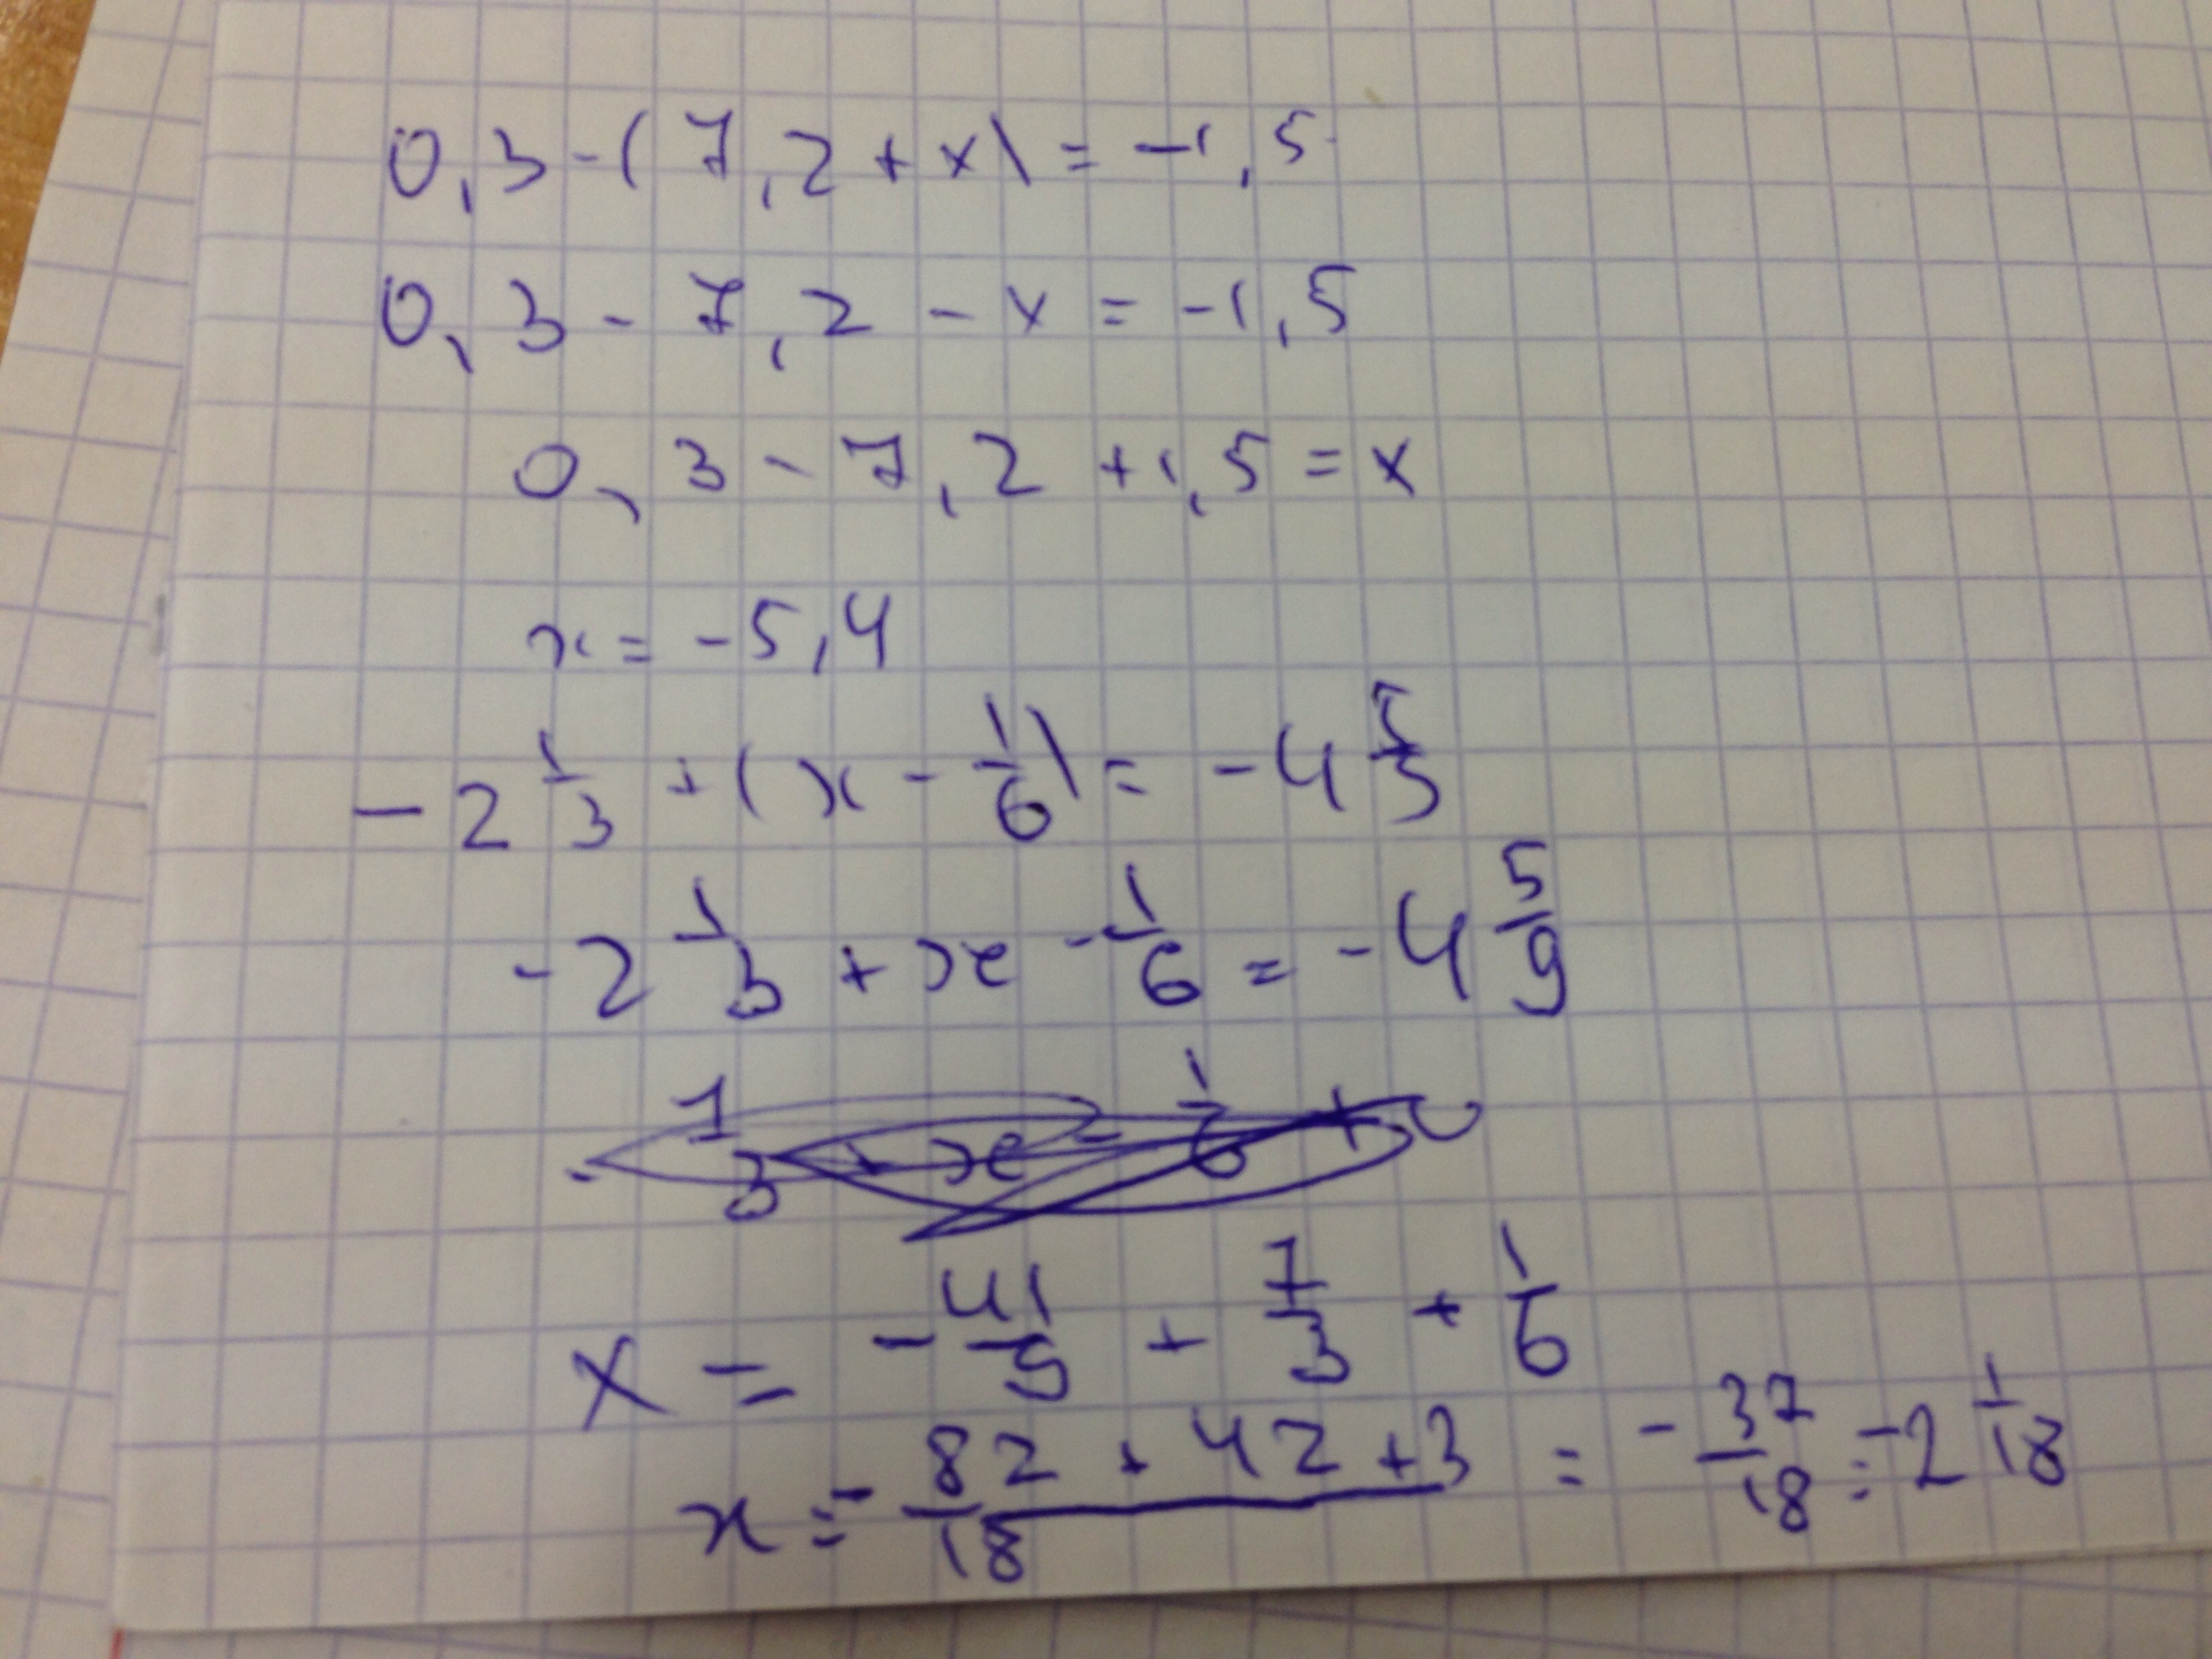 0,3 - (7,2 + x) = -1,5
0,3 - 7,2 - x = -1,5
0,3 - 7,2 + 1,5 = x
x = -5,4
-2 1/3 + (x - 1/6) = -4 5/9
-2 1/3 + x - 1/6 = -4 5/9
- 1/3 + x - 1/6 +
x = -41/9 + 7/3 + 1/6
x = (-82 + 42 + 3)/18 = -37/18 = -2 1/18